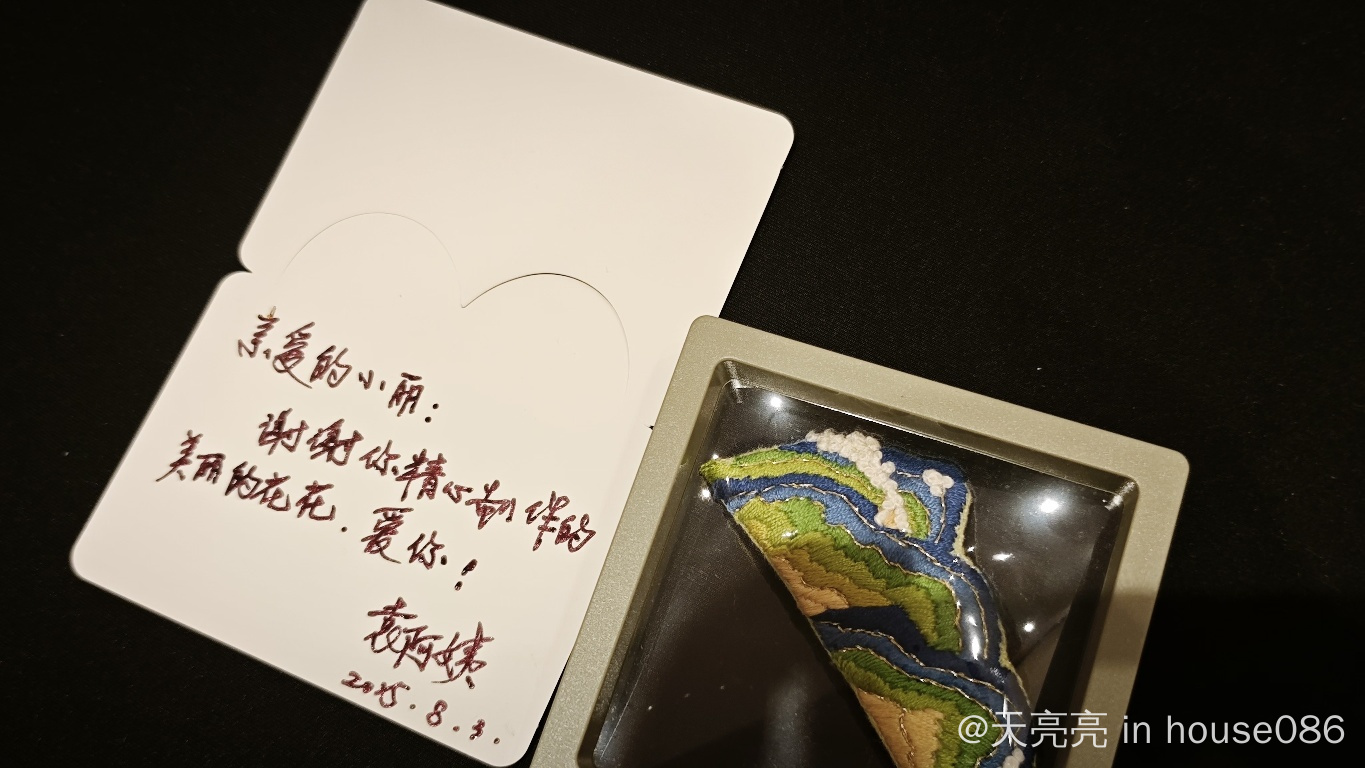 亲爱的小丽：
谢谢你精心制作的
美丽的花花．爱你！
袁阿姨
2025.8.3.
@天亮亮 in house086